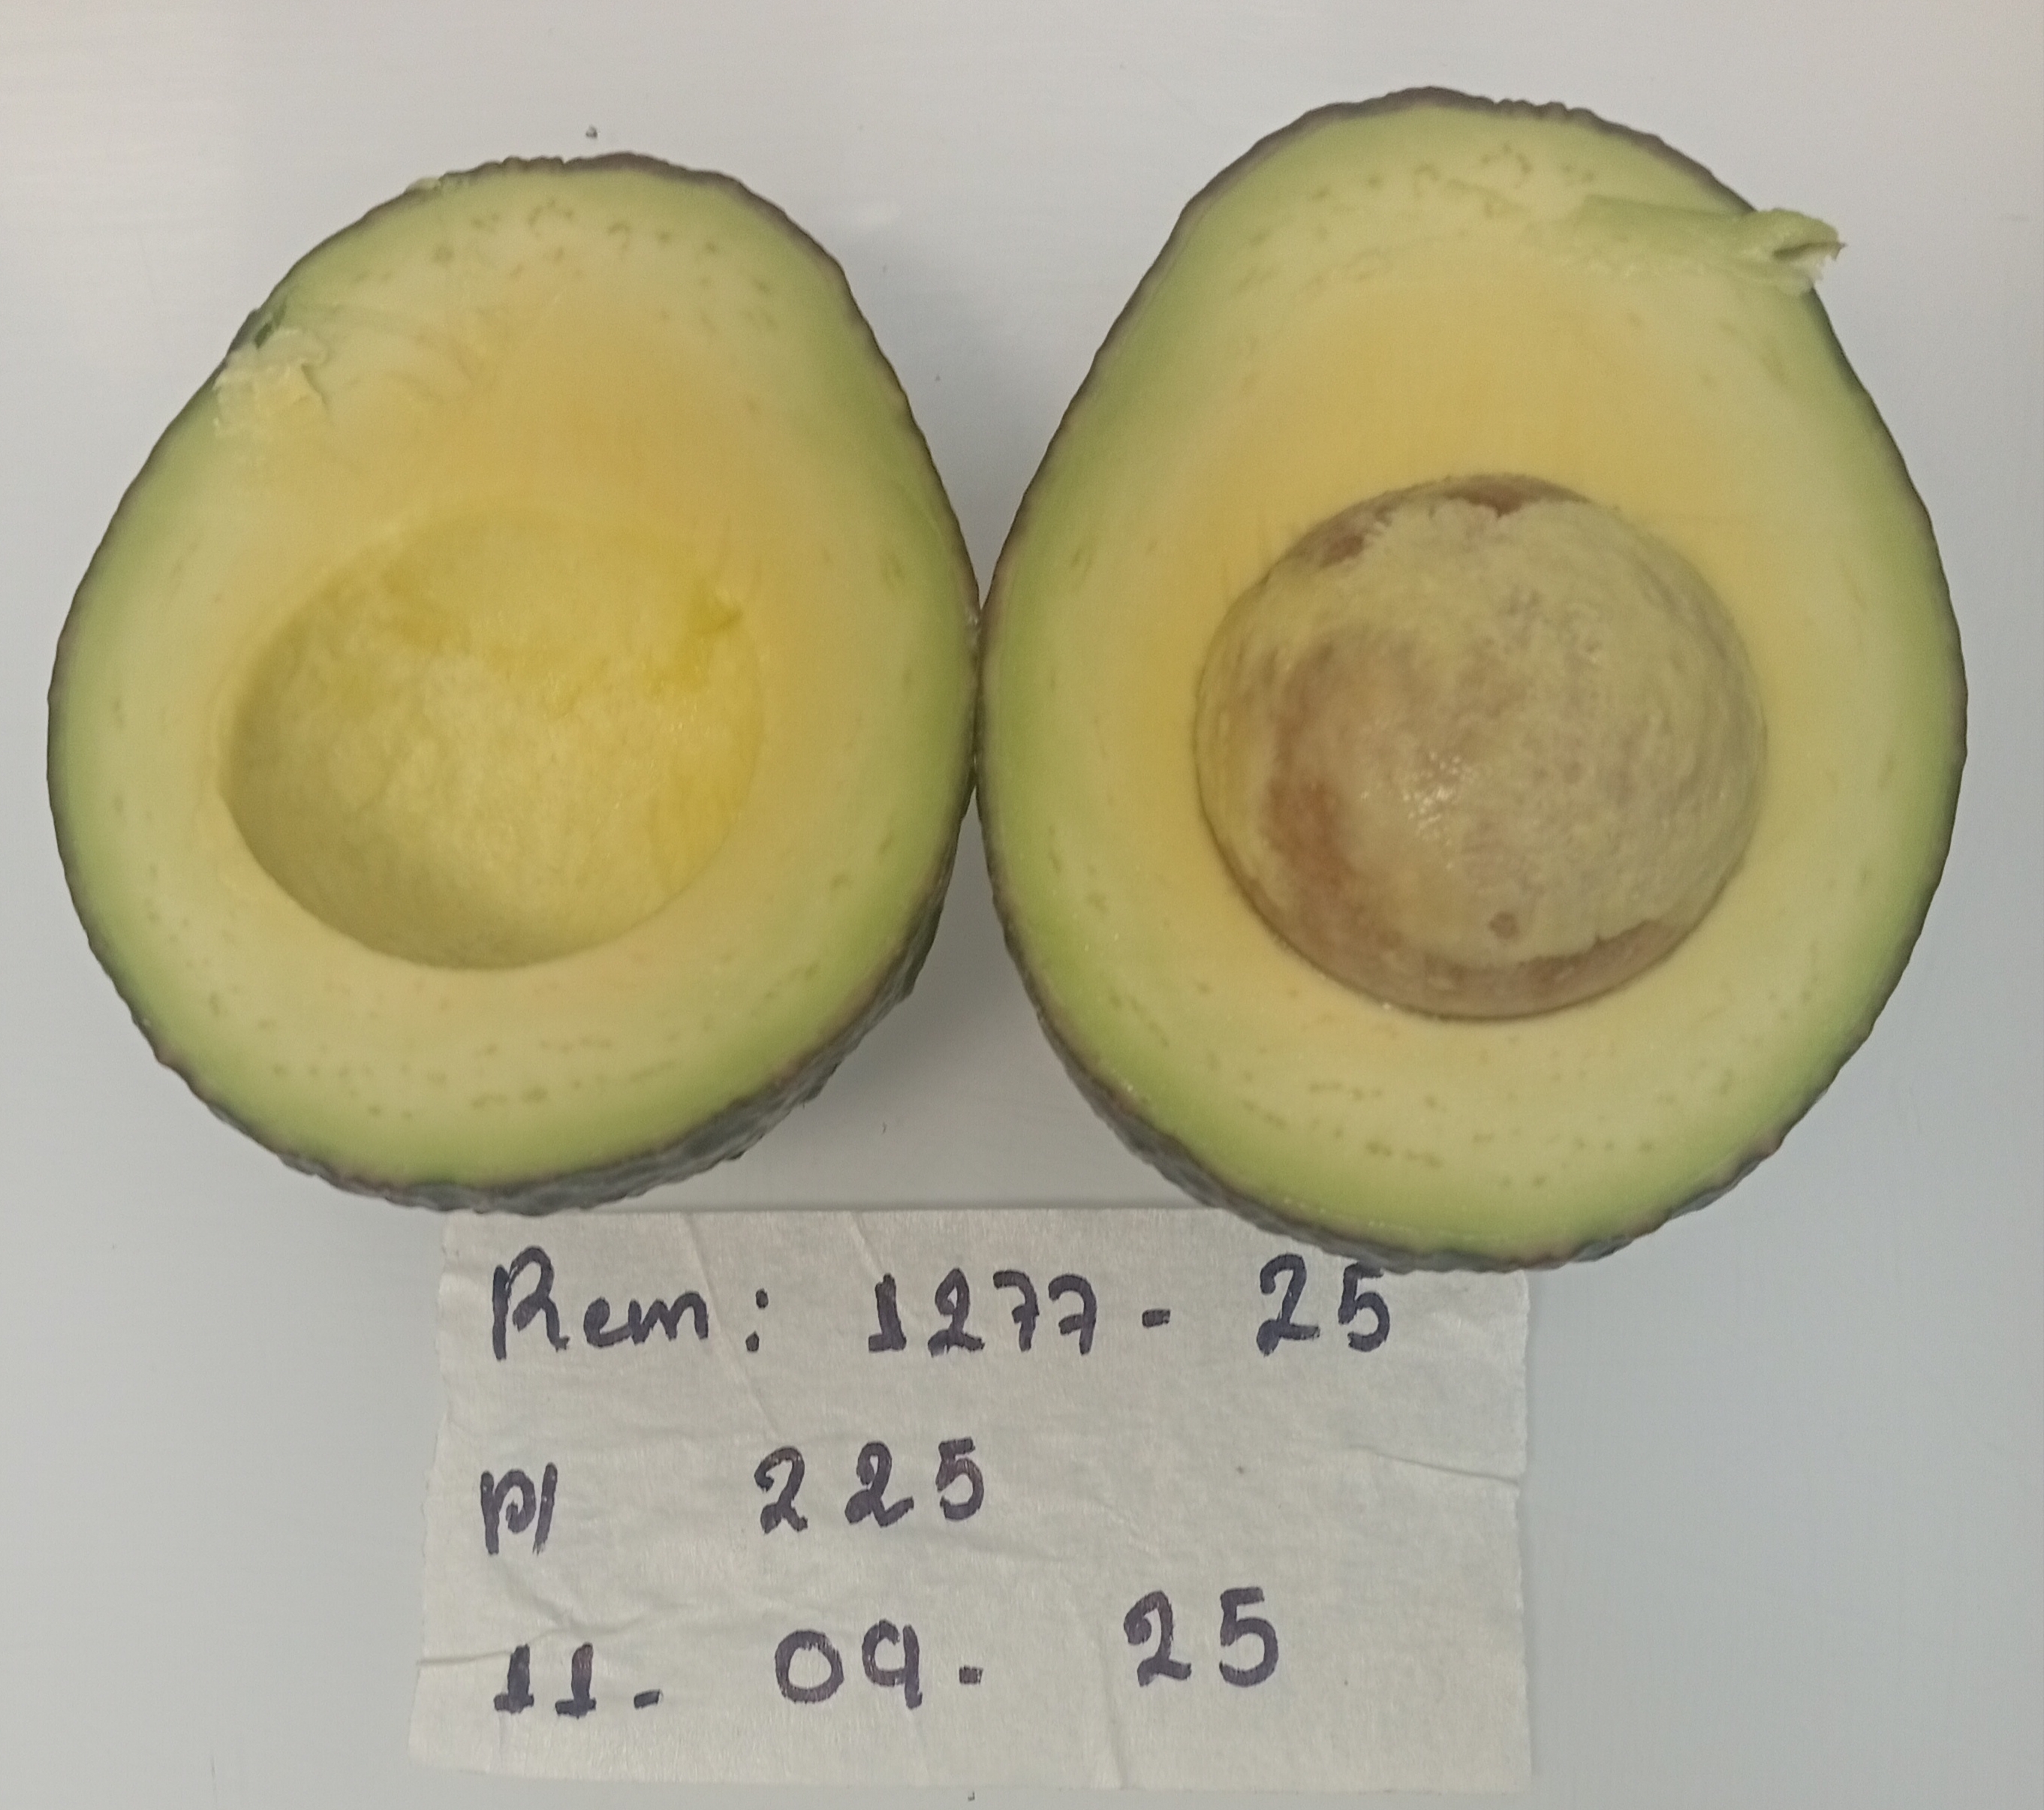 Rem: 1277- 25
P/ 225
11. 09. 25